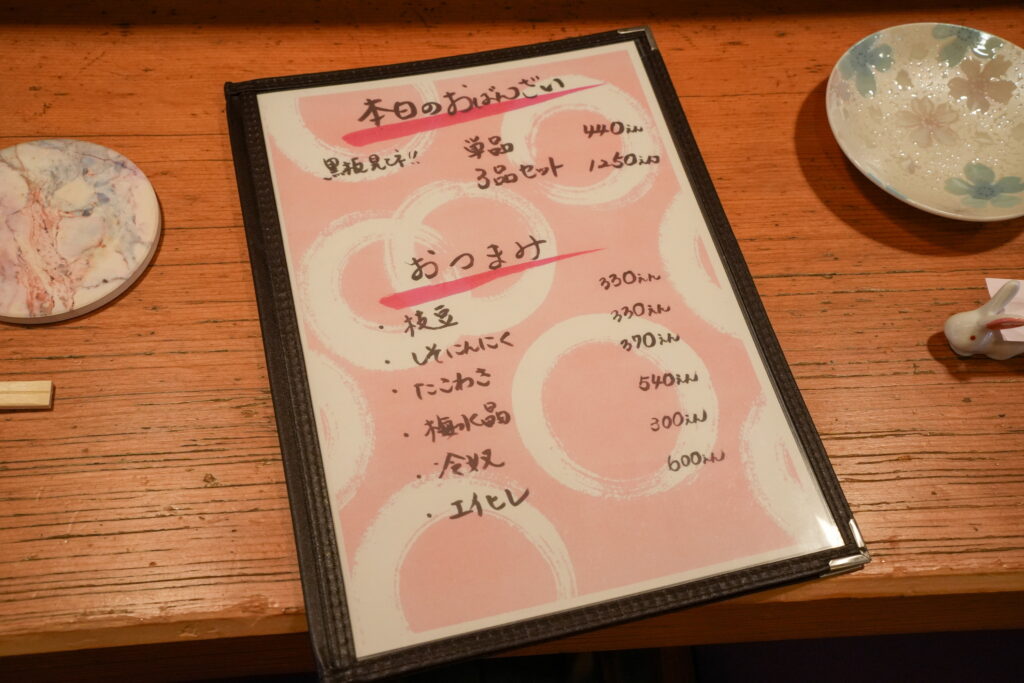 本日のおばんざい
黒板見てネ!! 単品 440えん
3品セット 1250えん
おつまみ
・枝豆 330えん
・しそにんにく 330えん
・たこわさ 370えん
・梅水晶 540えん
・冷奴 300えん
・エイヒレ 600えん